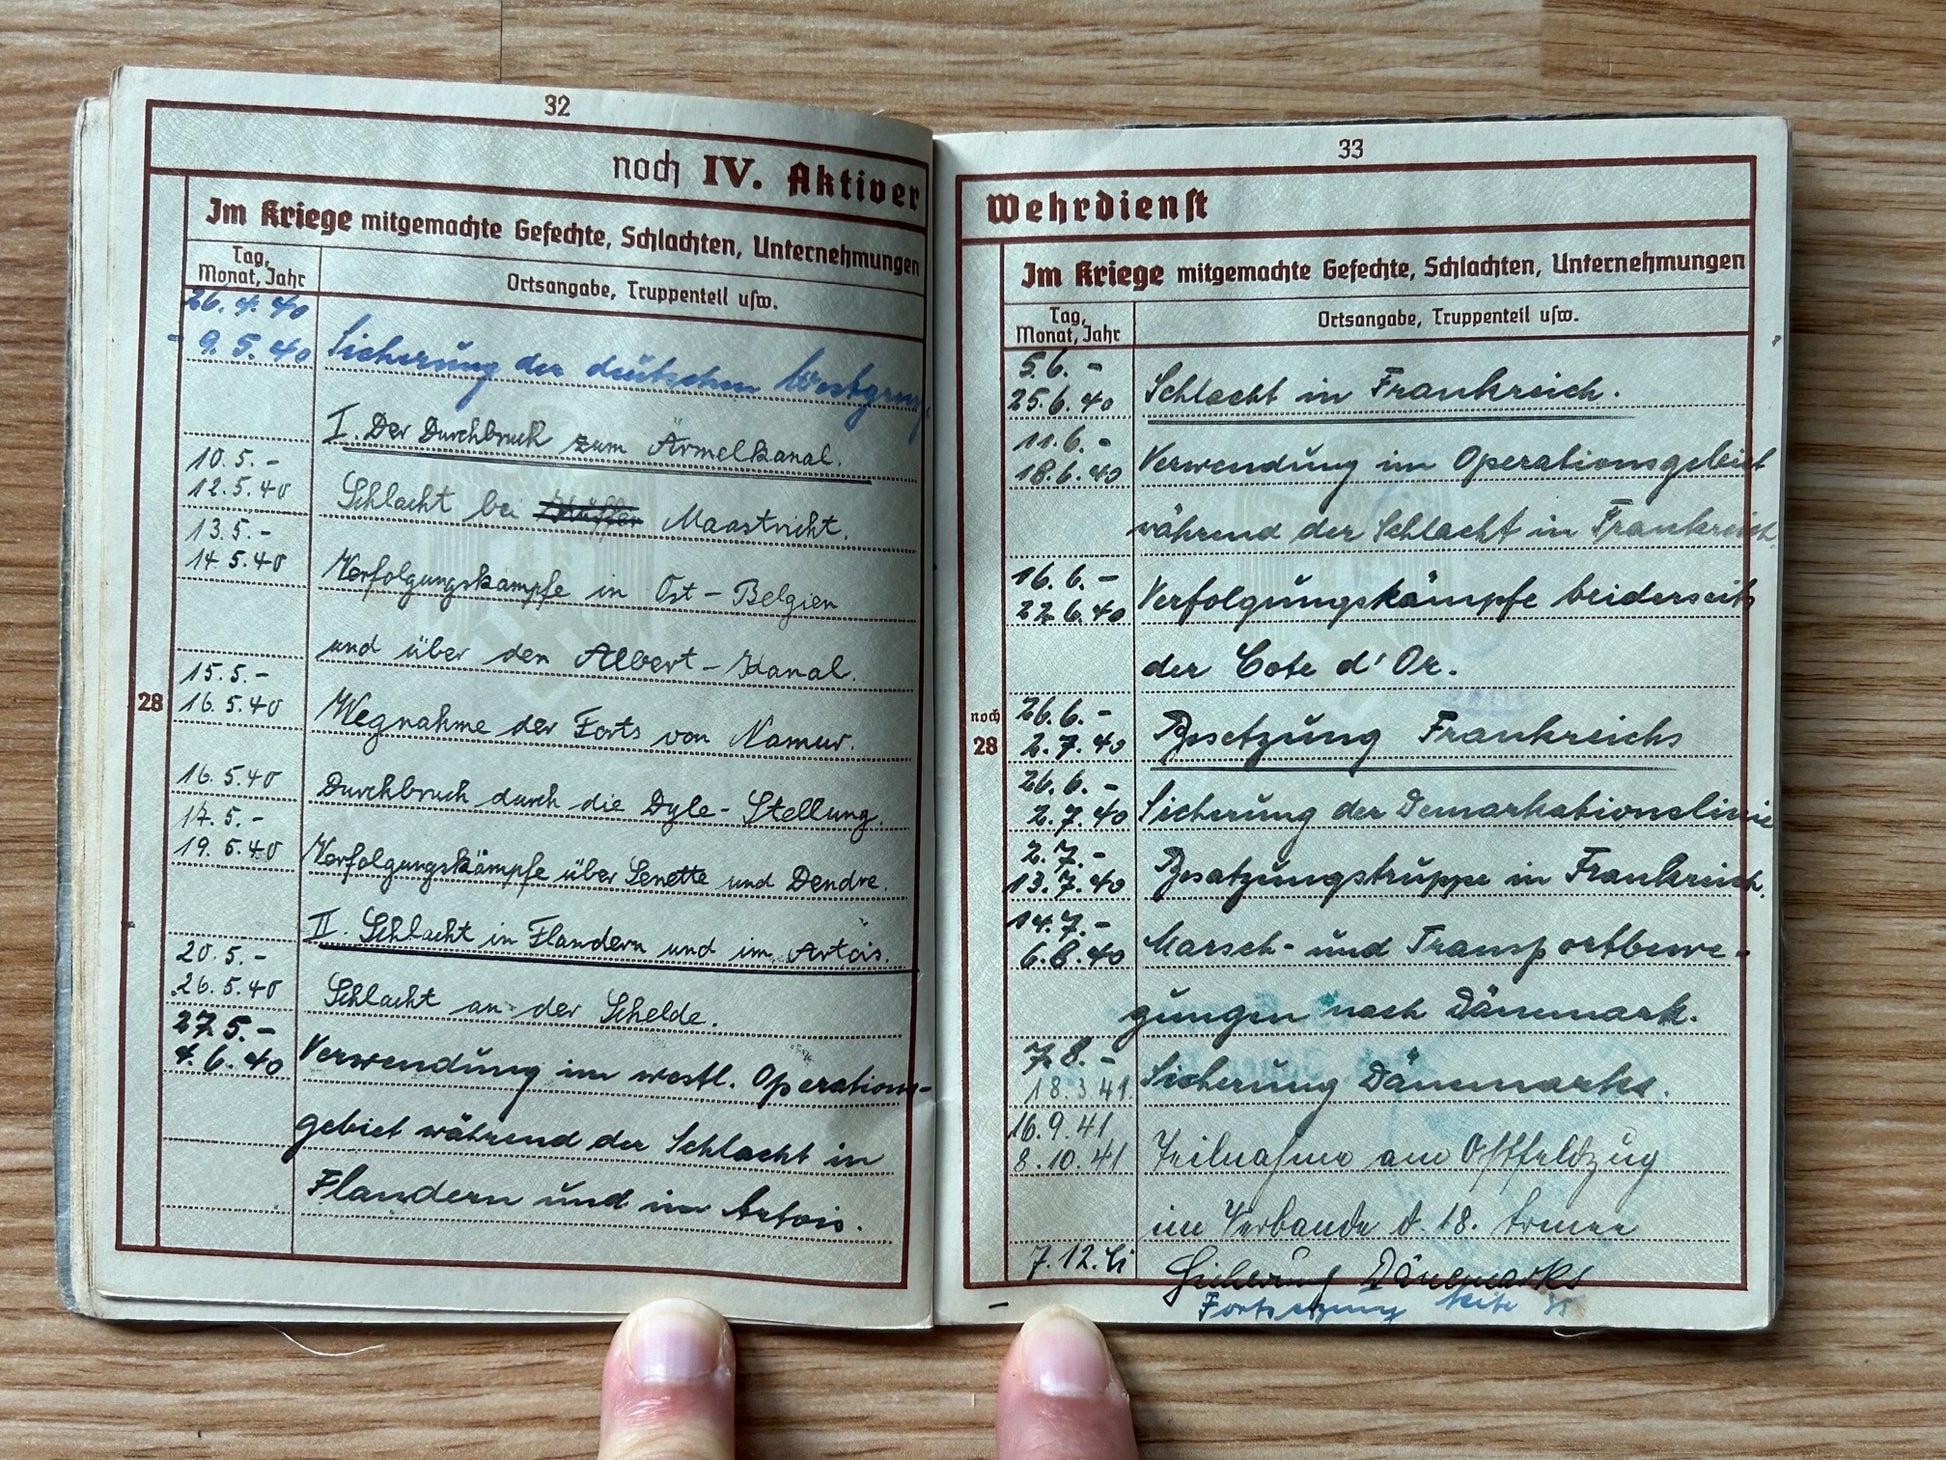 32
noch IV. Aktiver
Im Kriege mitgemachte Gefechte, Schlachten, Unternehmungen
Tag, Monat, Jahr
Ortsangabe, Truppenteil usw.
26.4.40
- 9.5.40 Sicherung der deutschen Westgrenze
I. Der Durchbruch zum Ärmelkanal.
10.5.-
12.5.40 Schlacht bei Maastricht.
13.5.-
14.5.40 Verfolgungskämpfe in Ost-Belgien
und über den Albert-Kanal.
15.5.-
28
16.5.40 Wegnahme der Forts von Namur.
16.5.40 Durchbruch durch die Dyle-Stellung.
17.5.-
19.5.40 Verfolgungskämpfe über Senette und Dendre.
II. Schlacht in Flandern und im Artois.
20.5.-
26.5.40 Schlacht an der Schelde.
27.5.-
4.6.40 Verwendung im westl. Operations-
gebiet während der Schlacht in
Flandern und im Artois.
33
Wehrdienst
Im Kriege mitgemachte Gefechte, Schlachten, Unternehmungen
Tag, Monat, Jahr
Ortsangabe, Truppenteil usw.
5.6.-
25.6.40 Schlacht in Frankreich.
11.6.-
18.6.40 Verwendung im Operationsgebiet
während der Schlacht in Frankreich.
16.6.-
22.6.40 Verfolgungskämpfe beiderseits
der Cote d'Or.
noch 28
26.6.-
2.7.40 Besetzung Frankreichs
26.6.-
2.7.40 Sicherung der Demarkationslinie
2.7.-
13.7.40 Besatzungstruppe in Frankreich.
14.7.-
6.8.40 Marsch- und Transportbewe-
gungen nach Dänemark.
7.8.-
18.3.41. Sicherung Dänemarks.
16.9.41
8.10.41 Teilnahme am Ostfeldzug
im Verbande d. 18. Armee
7.12.41 Sicherung Dänemarks
Fortsetzung Seite 35